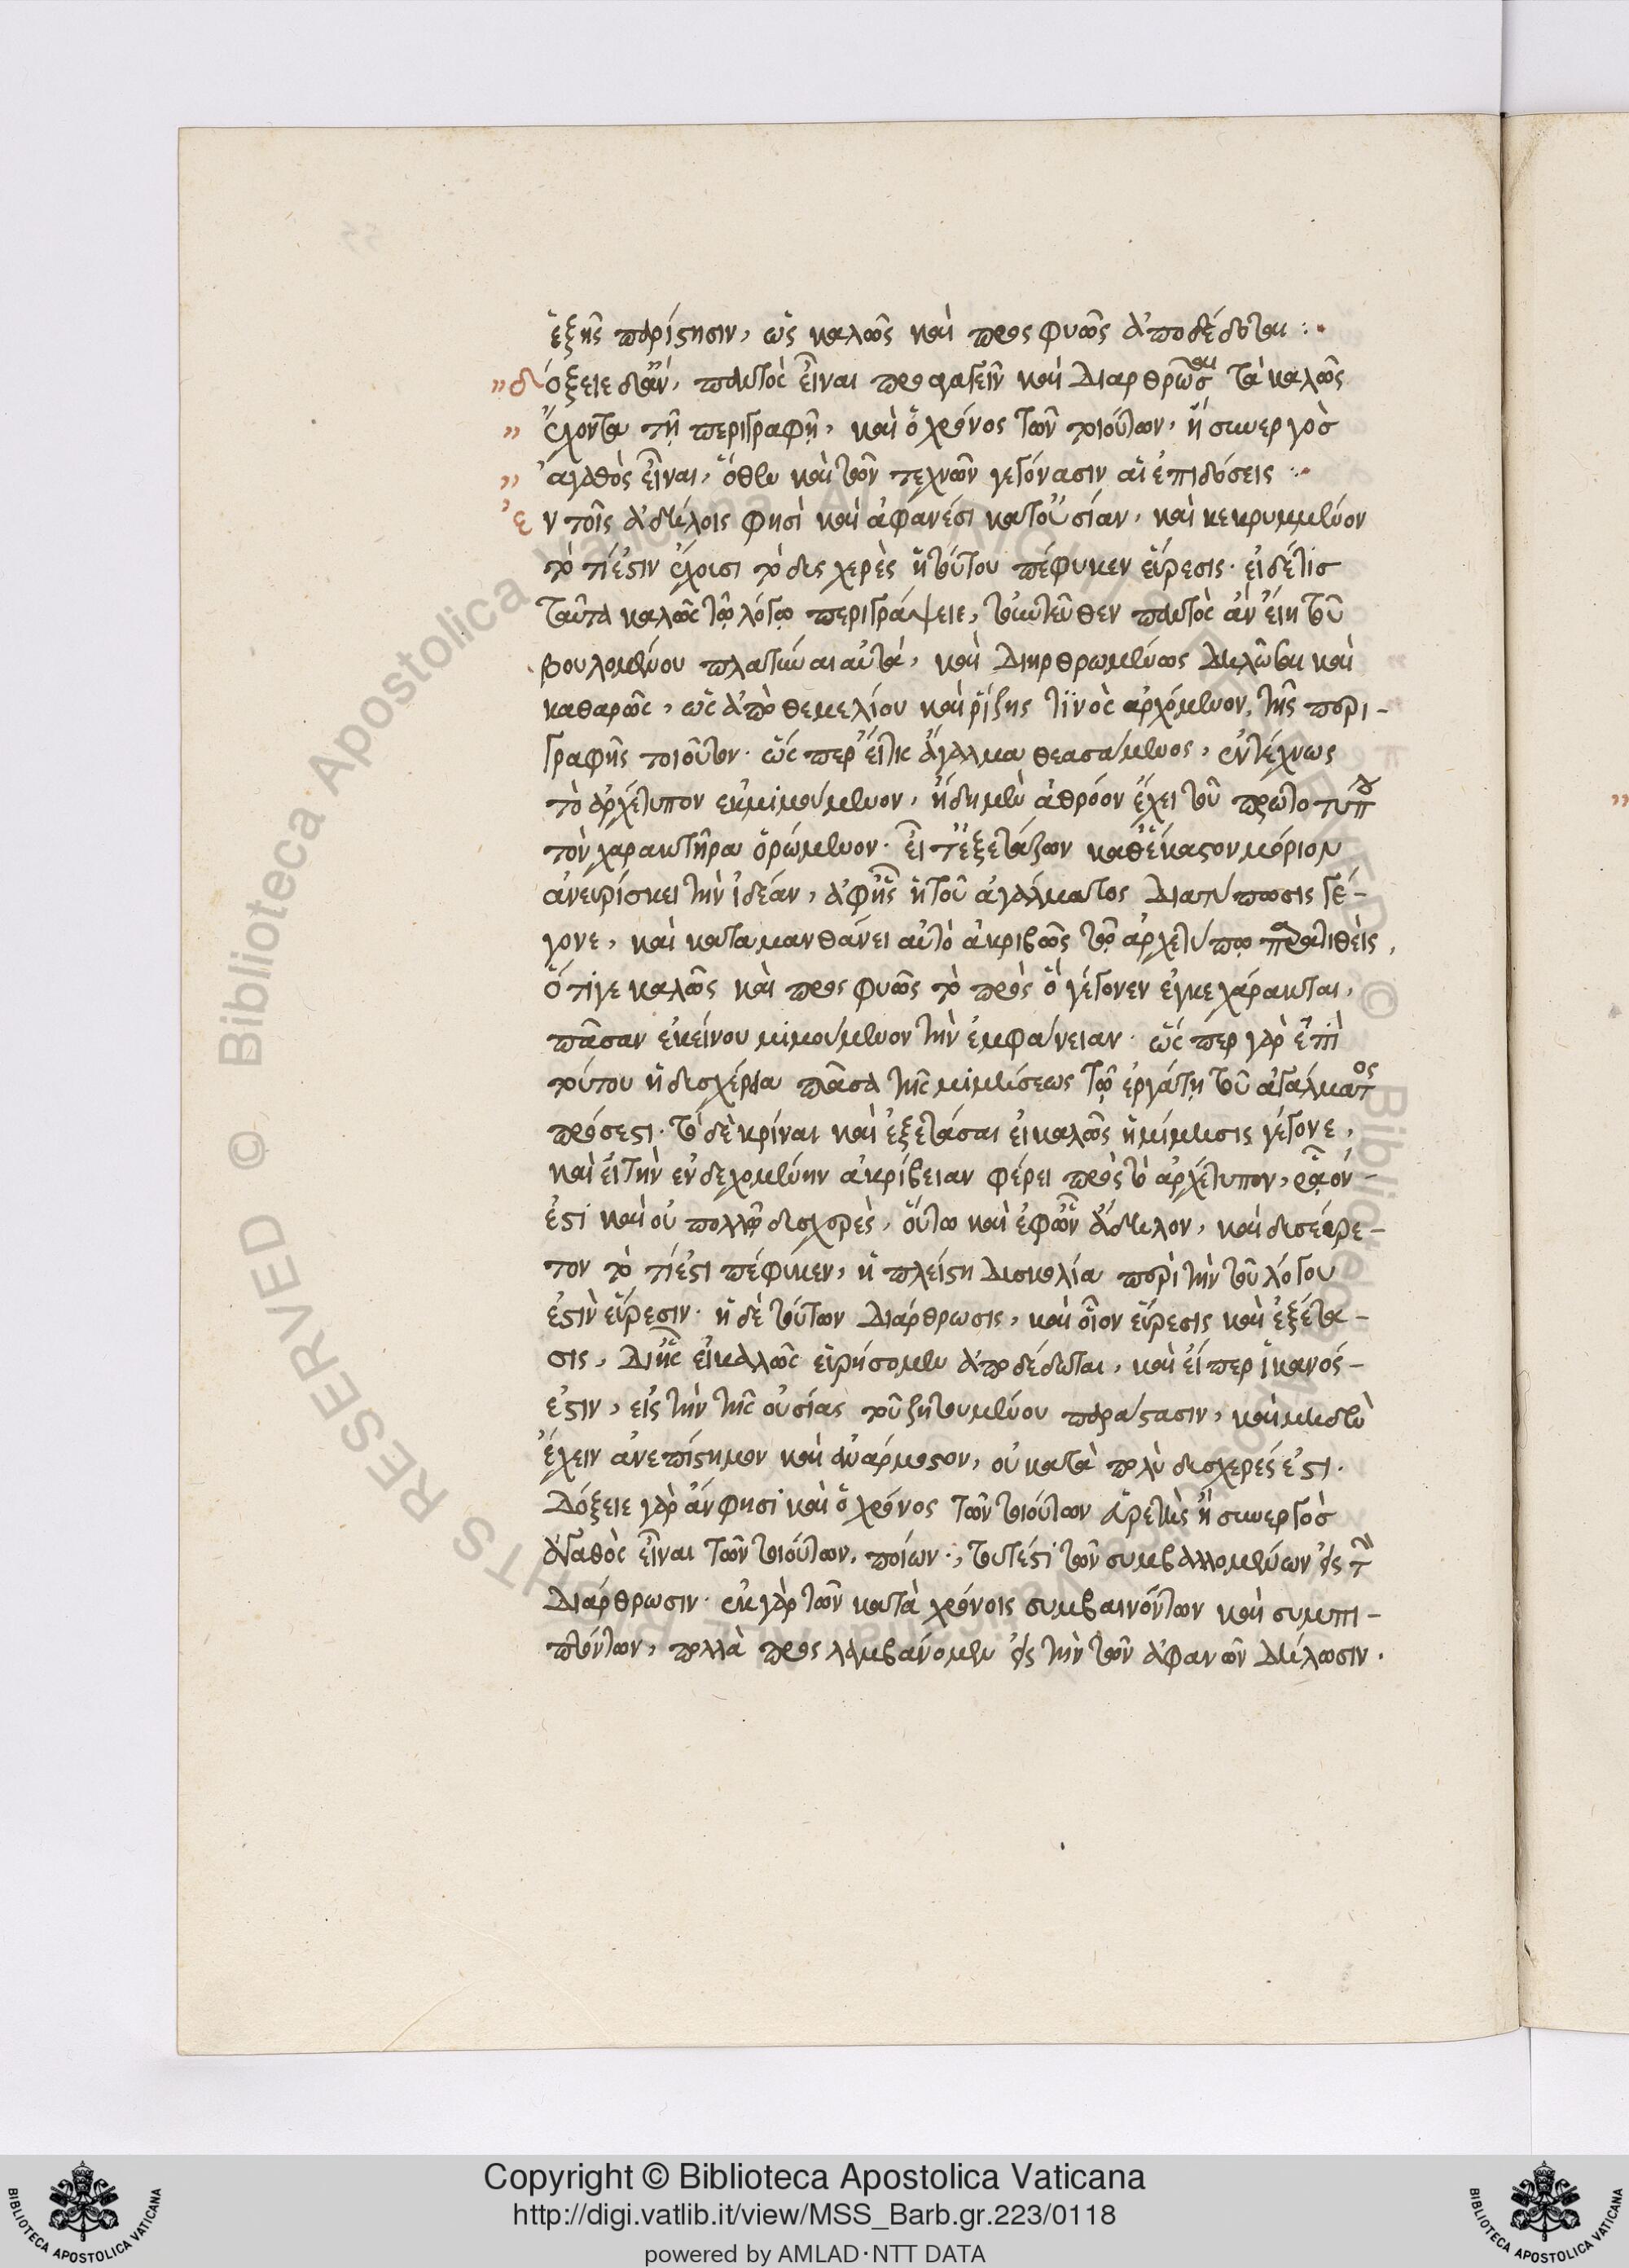 ἑξῆς παρίστησιν, ὡς καλῶς καὶ προσφυῶς ἀποδέδοται :·
„ δόξειε δ' ἂν, παντὸς εἶναι προαγαγεῖν καὶ διαρθρῶσαι τὰ καλῶς
„ ἔχοντα τῇ περιγραφῇ, καὶ ὁ χρόνος τῶν τοιούτων, ἢ συνεργὸσ
„ ἀγαθὸς εἶναι, ὅθεν καὶ τῶν τεχνῶν γεγόνασιν αἱ ἐπιδόσεις :·
Ἐν τοῖς ἀδήλοις φησὶ καὶ ἀφανέσι κατ' οὐσίαν, καὶ κεκρυμμένον
τὸ τί ἐστιν ἔχουσι τὸ δυσχερὲς ἡ τούτου πέφυκεν εὕρεσις· εἰ δέ τισ
ταῦτα καλῶς τῷ λόγῳ περιγράψειε, τὸ ἐντεῦθεν παντὸς ἂν εἴη τοῦ
βουλομένου πλατύναι αὐτά, καὶ διηρθρωμένως δηλῶσαι καὶ
καθαρῶς, ὡς ἀπὸ θεμελίου καὶ ῥίζης τινὸς ἀρχόμενον, τῆς περι-
γραφῆς τοιοῦτον· ὥσπερ εἴ τις ἄγαλμα θεασάμενος, ἐντέχνως
τὸ ἀρχέτυπον ἐκμιμούμενον, ἤδη μὲν ἀθρόον ἔχει τοῦ πρωτοτύπου
τὸν χαρακτῆρα ὁρώμενον· εἶτ' ἐξετάζων καθ' ἕκαστον μόριον
ἀνευρίσκει τὴν ἰδέαν, ἀφ' ἧς ἡ τοῦ ἀγάλματος διατύπωσις γέ-
γονε, καὶ καταμανθάνει αὐτὸ ἀκριβῶς τῷ ἀρχετύπῳ παρατιθεὶς,
ὅτι γε καλῶς καὶ προσφυῶς τὸ πρὸς ὃ γέγονεν ἐγκεχάρακται,
πᾶσαν ἐκείνου μιμούμενον τὴν ἐμφάνειαν· ὥσπερ γὰρ ἐπὶ
τούτου ἡ δυσχέρεια πᾶσα τῆς μιμήσεως τῷ ἐργάτῃ τοῦ ἀγάλματος
πρόσεστι· τὸ δὲ κρῖναι καὶ ἐξετάσαι εἰ καλῶς ἡ μίμησις γέγονε,
καὶ εἰ τὴν ἐνδεχομένην ἀκρίβειαν φέρει πρὸς τὸ ἀρχέτυπον, ῥᾷον
ἐστὶ καὶ οὐ πολλῷ δυσχερὲς, οὕτω καὶ ἐφ' ὧν ἄδηλον, καὶ δυσεύρε-
τον τὸ τί ἐστι πέφυκεν, ἡ πλείστη δυσκολία περὶ τὴν τοῦ λόγου
ἐστὶν εὕρεσιν· ἡ δὲ τούτων διάρθρωσις, καὶ οἷον εὕρεσις καὶ ἐξέτα-
σις, δι' ἧς εἰ καλῶς εὑρήσομεν ἀποδέδοται, καὶ εἴπερ ἱκανός
ἐστιν, εἰς τὴν τῆς οὐσίας τοῦ ζητουμένου παράστασιν, καὶ μηδὲν
ἔχειν ἀνεπίστημον καὶ ἀνάρμοστον, οὐ κατὰ πολὺ δυσχερές ἐστι·
Δόξειε γὰρ ἄν φησι καὶ ὁ χρόνος τῶν τοιούτων εὑρετὴς ἢ συνεργὸσ
ἀγαθὸς εἶναι τῶν τοιούτων, ποίων·, τουτέστι τῶν συμβαλλομένων εἰς τὴν
διάρθρωσιν· ἐκ γὰρ τῶν κατὰ χρόνοις συμβαινόντων καὶ συμπι-
πτόντων, πολλὰ προσλαμβάνομεν εἰς τὴν τῶν ἀφανῶν δήλωσιν.
Copyright © Biblioteca Apostolica Vaticana
http://digi.vatlib.it/view/MSS_Barb.gr.223/0118
powered by AMLAD·NTT DATA